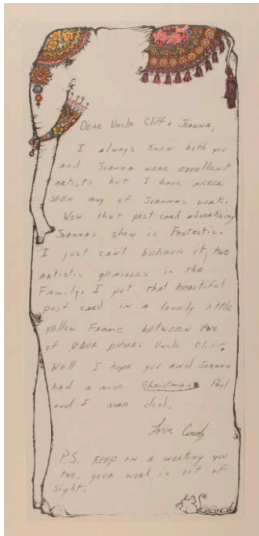 Dear Uncle Cliff & Joanna,
I always knew both you
and Joanna were excellent
artists but I have never
seen any of Joanna's work.
Wow that post card advertising
Joanna's show is Fantastic.
I just can't believe it, two
artistic geniuses in the
Family. I put that beautiful
post card in a lovely little
yellow frame between two
of your pictures Uncle Cliff.
Well I hope you and Joanna
had a nice Christmas Paul
and I sure did.
Love Candy
P.S. Keep on a working you
two, your work is out of
sight.